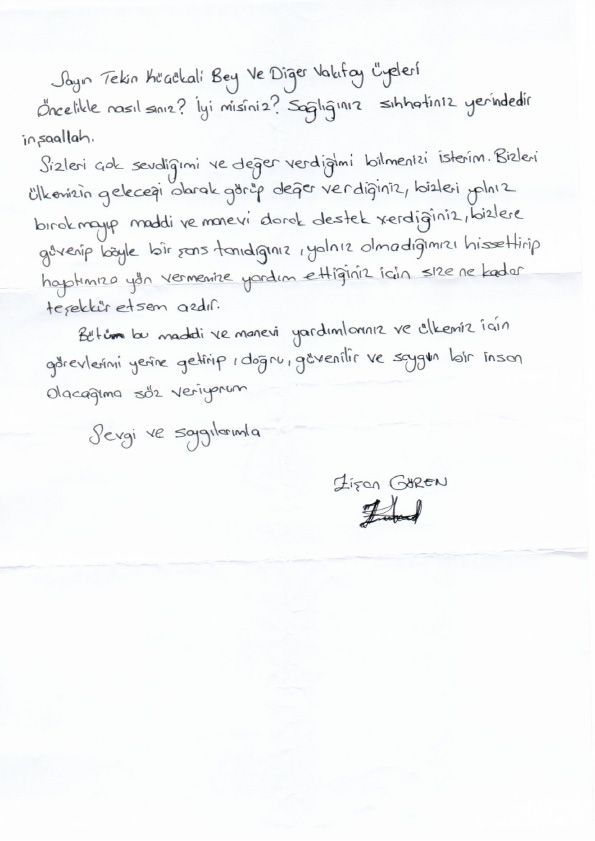 Sayın Tekin Küçükali Bey Ve Diğer Vakıfay Üyeleri
Öncelikle nasılsınız? İyi misiniz? Sağlığınız sıhhatiniz yerindedir
inşaallah.
Sizleri çok sevdiğimi ve değer verdiğimi bilmenizi isterim. Bizleri
ülkemizin geleceği olarak görüp değer verdiğiniz, bizleri yalnız
bırakmayıp maddi ve manevi darak destek verdiğiniz, bizlere
güvenip böyle bir şans tanıdığınız, yalnız olmadığımızı hissettirip
hayatımıza yön vermemize yardım ettiğiniz için size ne kadar
teşekkür etsem azdır.
Bütün bu maddi ve manevi yardımlarınız ve ülkemiz için
görevlerimi yerine getirip, doğru, güvenilir ve saygın bir insan
olacağıma söz veriyorum
Sevgi ve saygılarımla
Zişan GÖREN